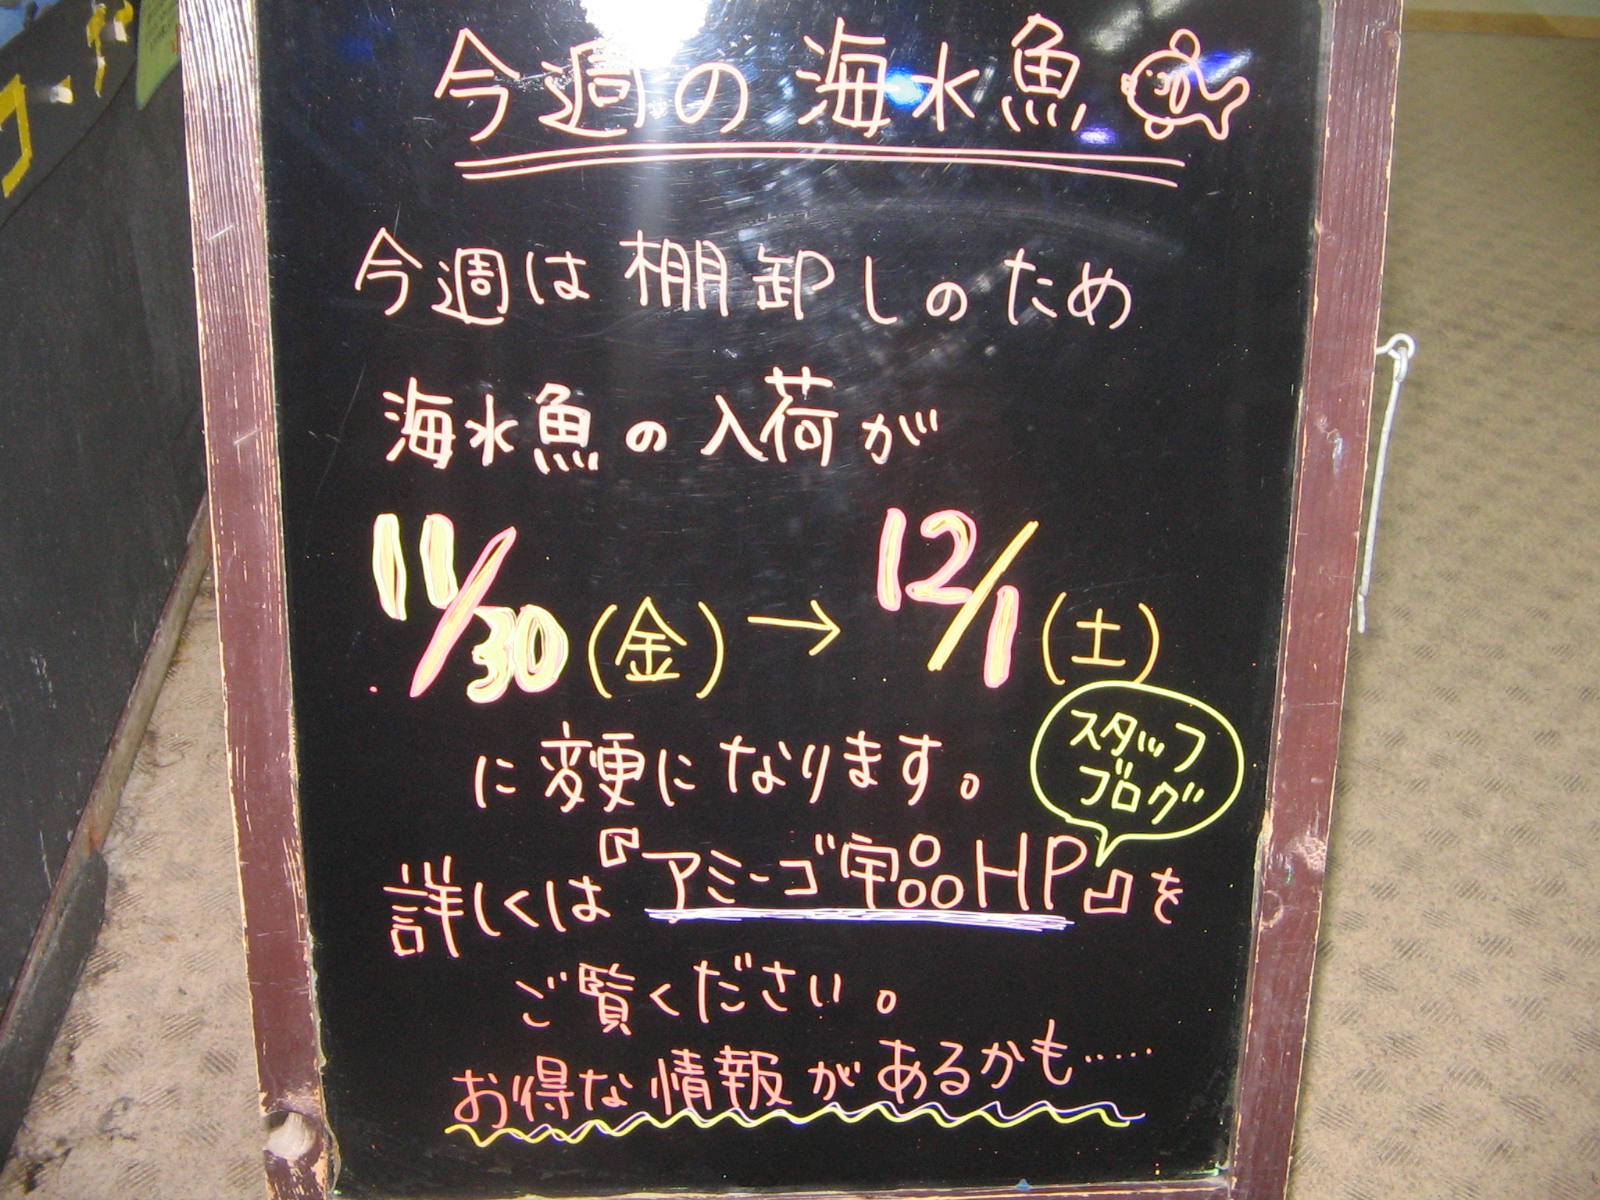 今週の海水魚
今週は棚卸しのため
海水魚の入荷が
11/30(金)→12/1(土)
に変更になります。
スタッフ
ブログ
詳しくは『アミーゴ宇品HP』を
ご覧ください。
お得な情報があるかも……